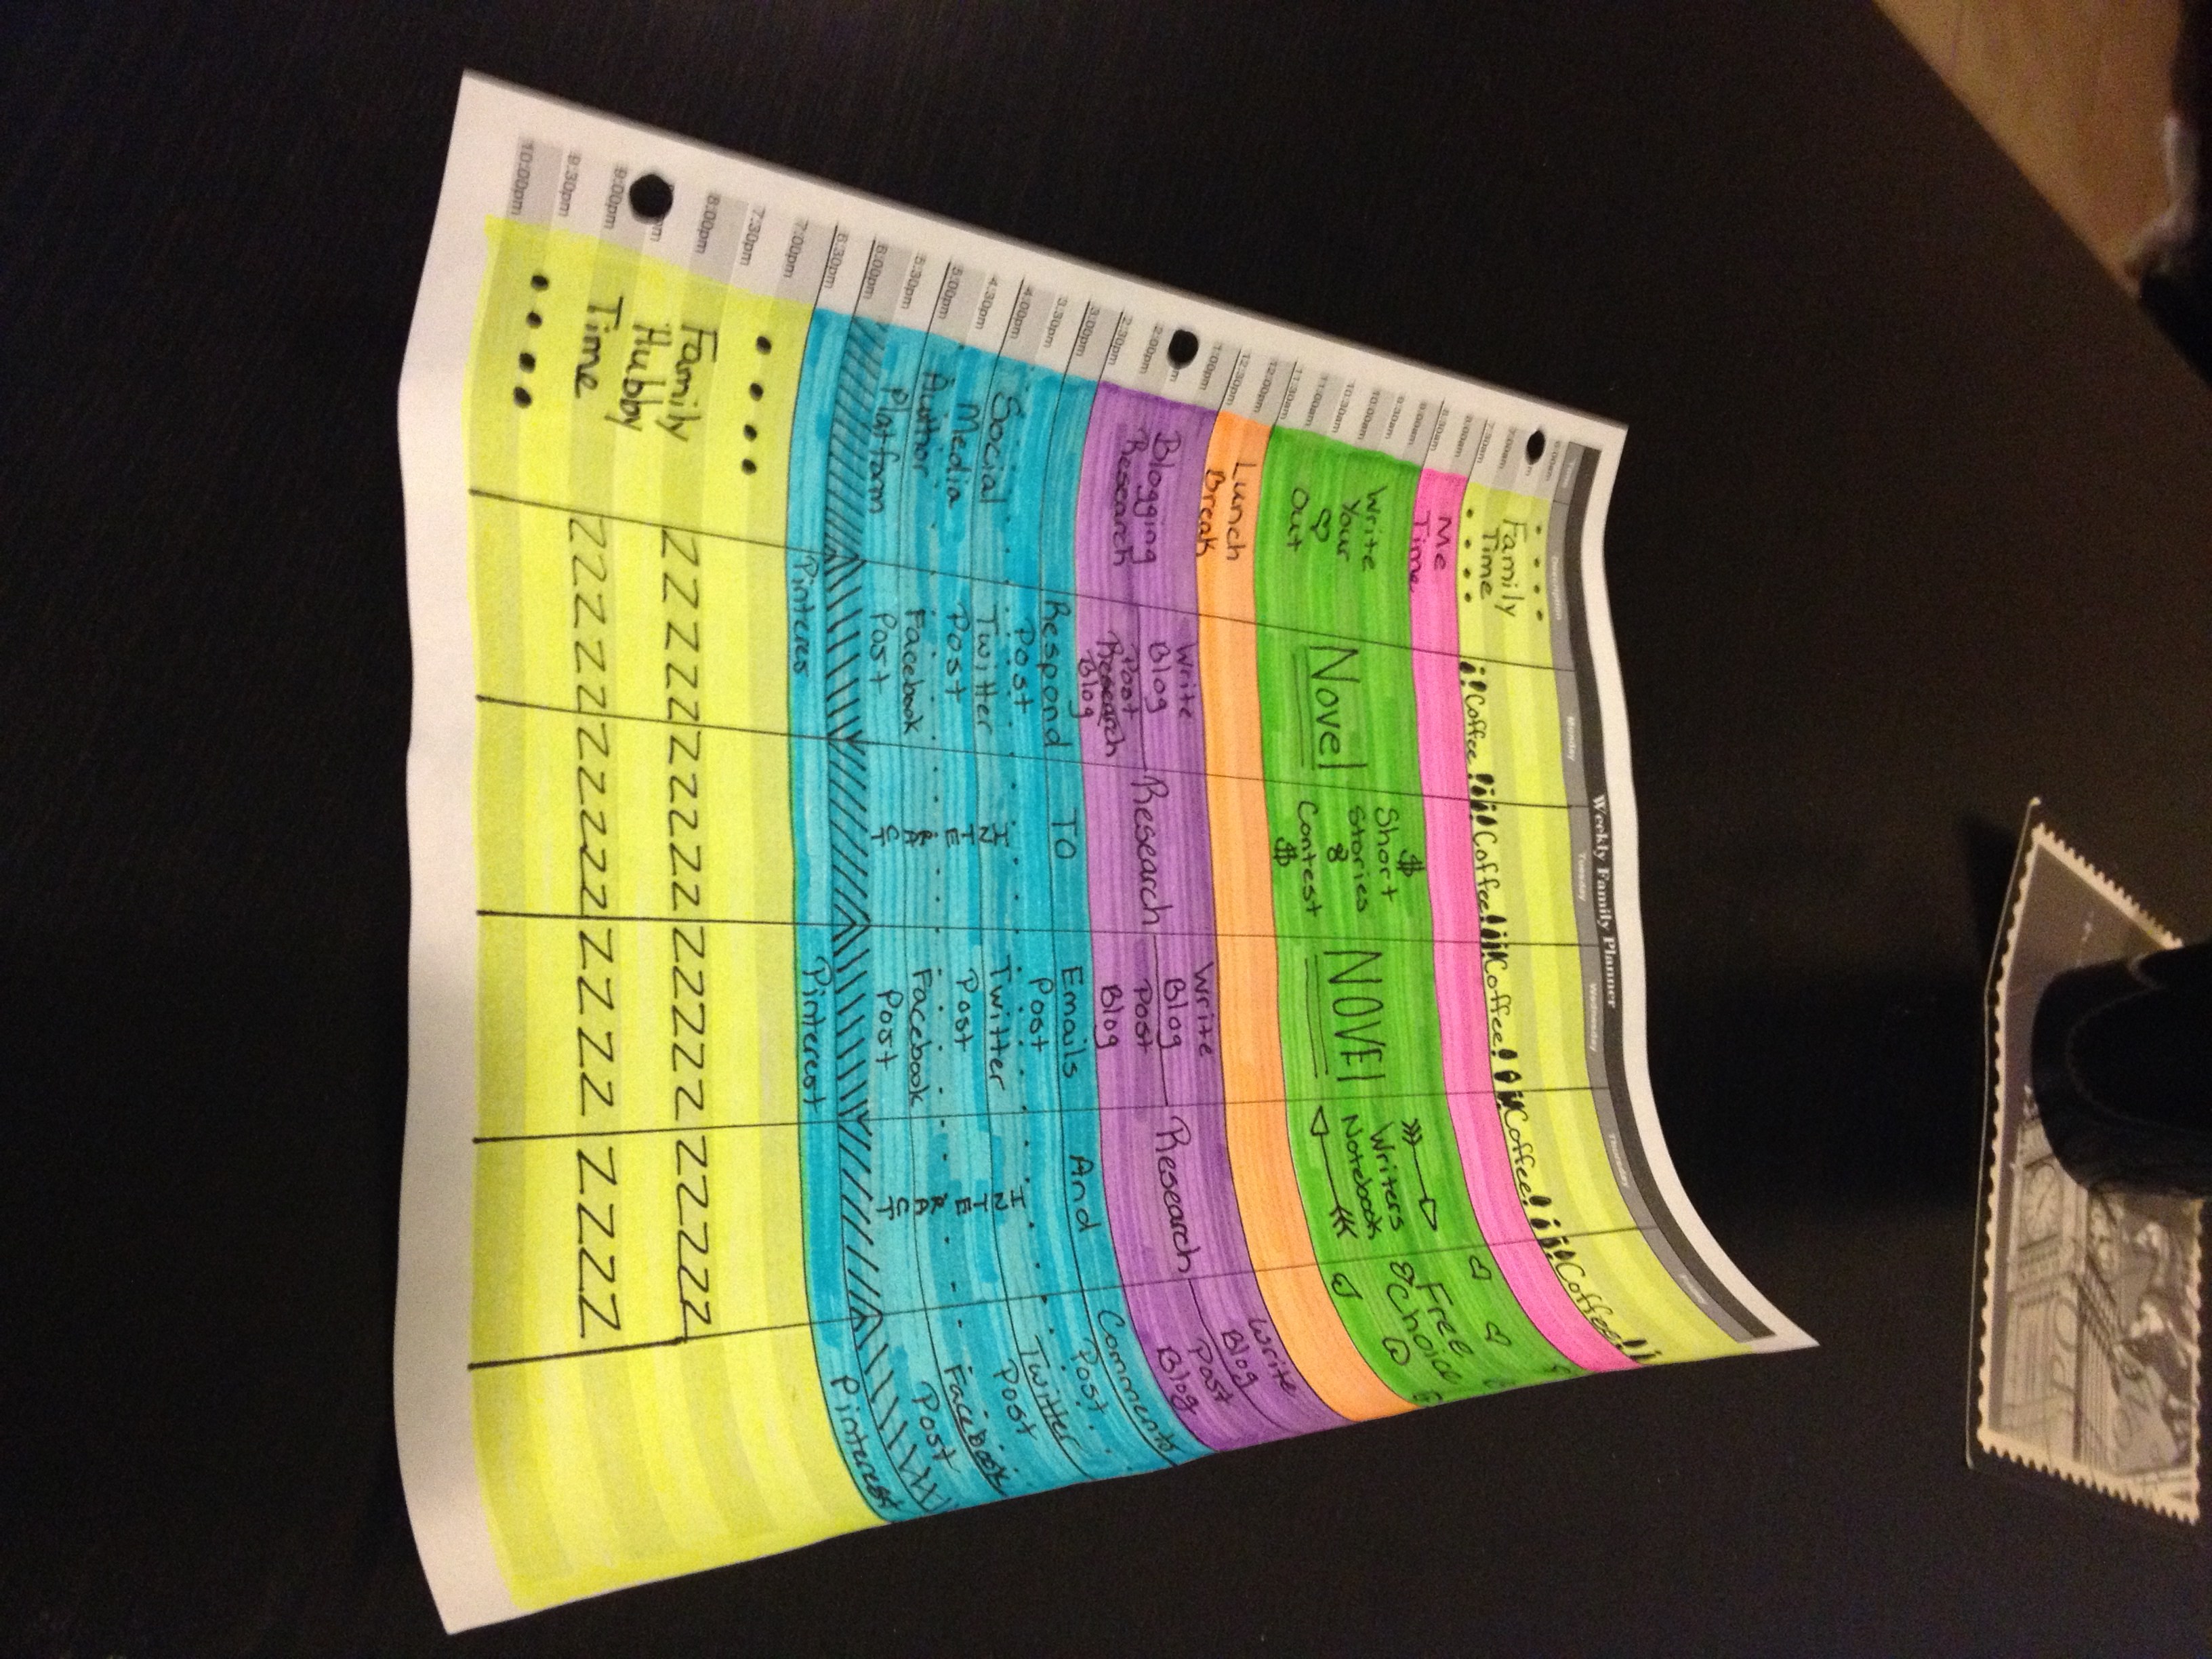 Weekly Family Planner
Description Monday Tuesday Wednesday Thursday
6:00am
7:00am
7:30am
8:00am
8:30am
9:00am
9:30am
10:00am
10:30am
11:00am
11:30am
12:00pm
12:30pm
1:00pm
2:00pm
2:30pm
3:00pm
3:30pm
4:00pm
4:30pm
5:00pm
5:30pm
6:00pm
6:30pm
7:00pm
7:30pm
8:00pm
9:00pm
9:30pm
10:00pm
Family
Time
Coffee!! Coffee!! Coffee!! Coffee!! Coffee!!
Me
Time
Write
Your
Out
Novel
$
Short
Stories
&
Contest
$
NOVEl
Writers
Notebook
Free
Choice
Lunch
Break
Blogging
Research
Write
Blog
Post
Research
Blog
Research
Write
Blog
Post
Blog
Research
Write
Blog
Post
Blog
Respond TO Emails And Comments
Social
Media
Author
Platform
Post
Twitter
Post
Facebook
Post
INTERACT
Post
Twitter
Post
Facebook
Post
INTERACT
Post
Twitter
Post
Facebook
Post
Pinteres
Pinterest
Pinterest
Family
Hubby
Time
ZZZZZZZZZZZZZZZZZZZ
ZZZZZZZZZZZZZZZZZZ